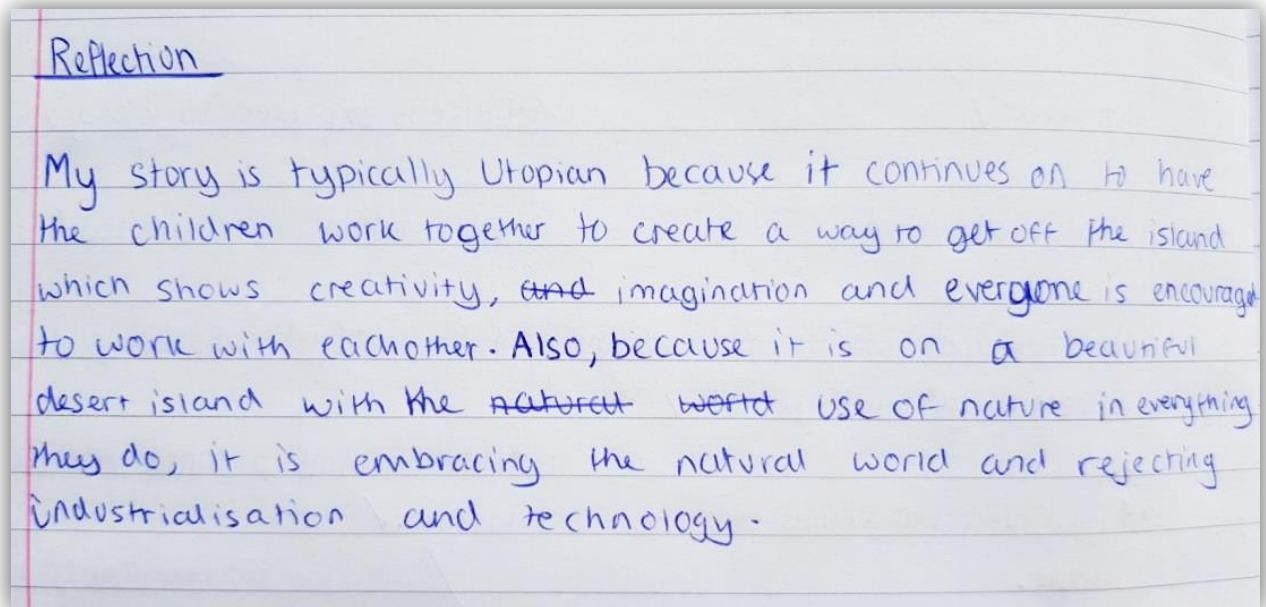 Reflection
My story is typically Utopian because it continues on to have
the children work together to create a way to get off the island
which shows creativity, ~~and~~ imagination and everyone is encouraged
to work with eachother. Also, because it is on a beautiful
desert island with the ~~natural world~~ use of nature in everything
they do, it is embracing the natural world and rejecting
industrialisation and technology.